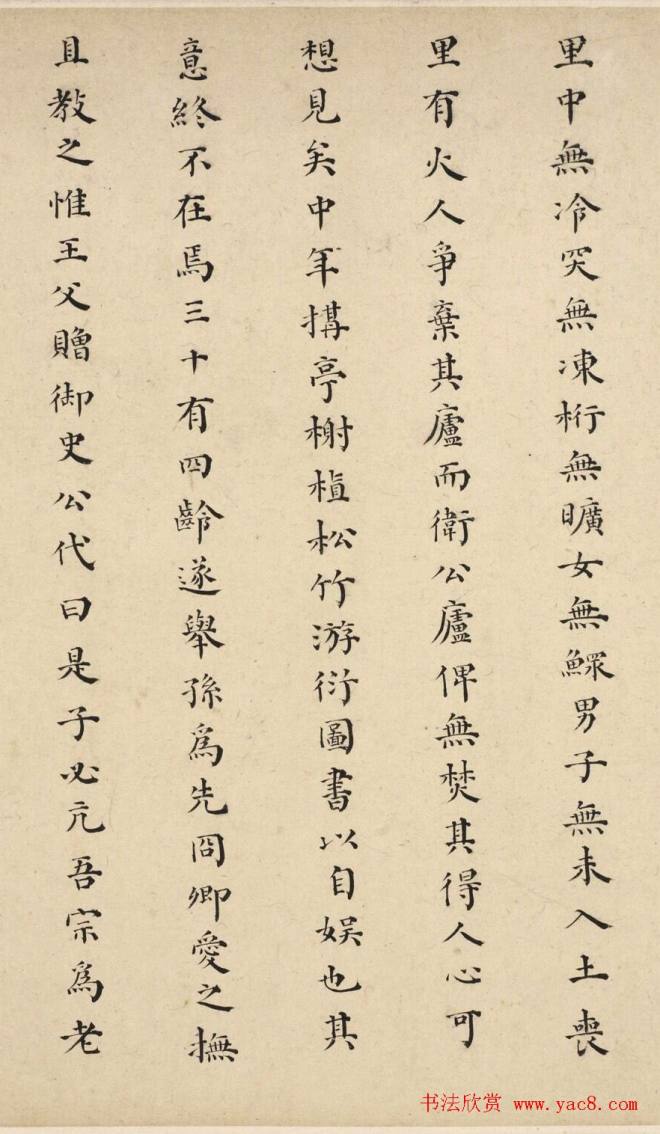 里中無冷突無凍桁無曠女無鰥男子無未入土喪
里有火人爭棄其廬而衛公廬俾無焚其得人心可
想見矣中年搆亭榭植松竹游衍圖書以自娛也其
意終不在焉三十有四齡遂舉孫為先冏卿愛之撫
且教之惟王父贈御史公代曰是子必亢吾宗為老
书法欣赏 www.yac8.com